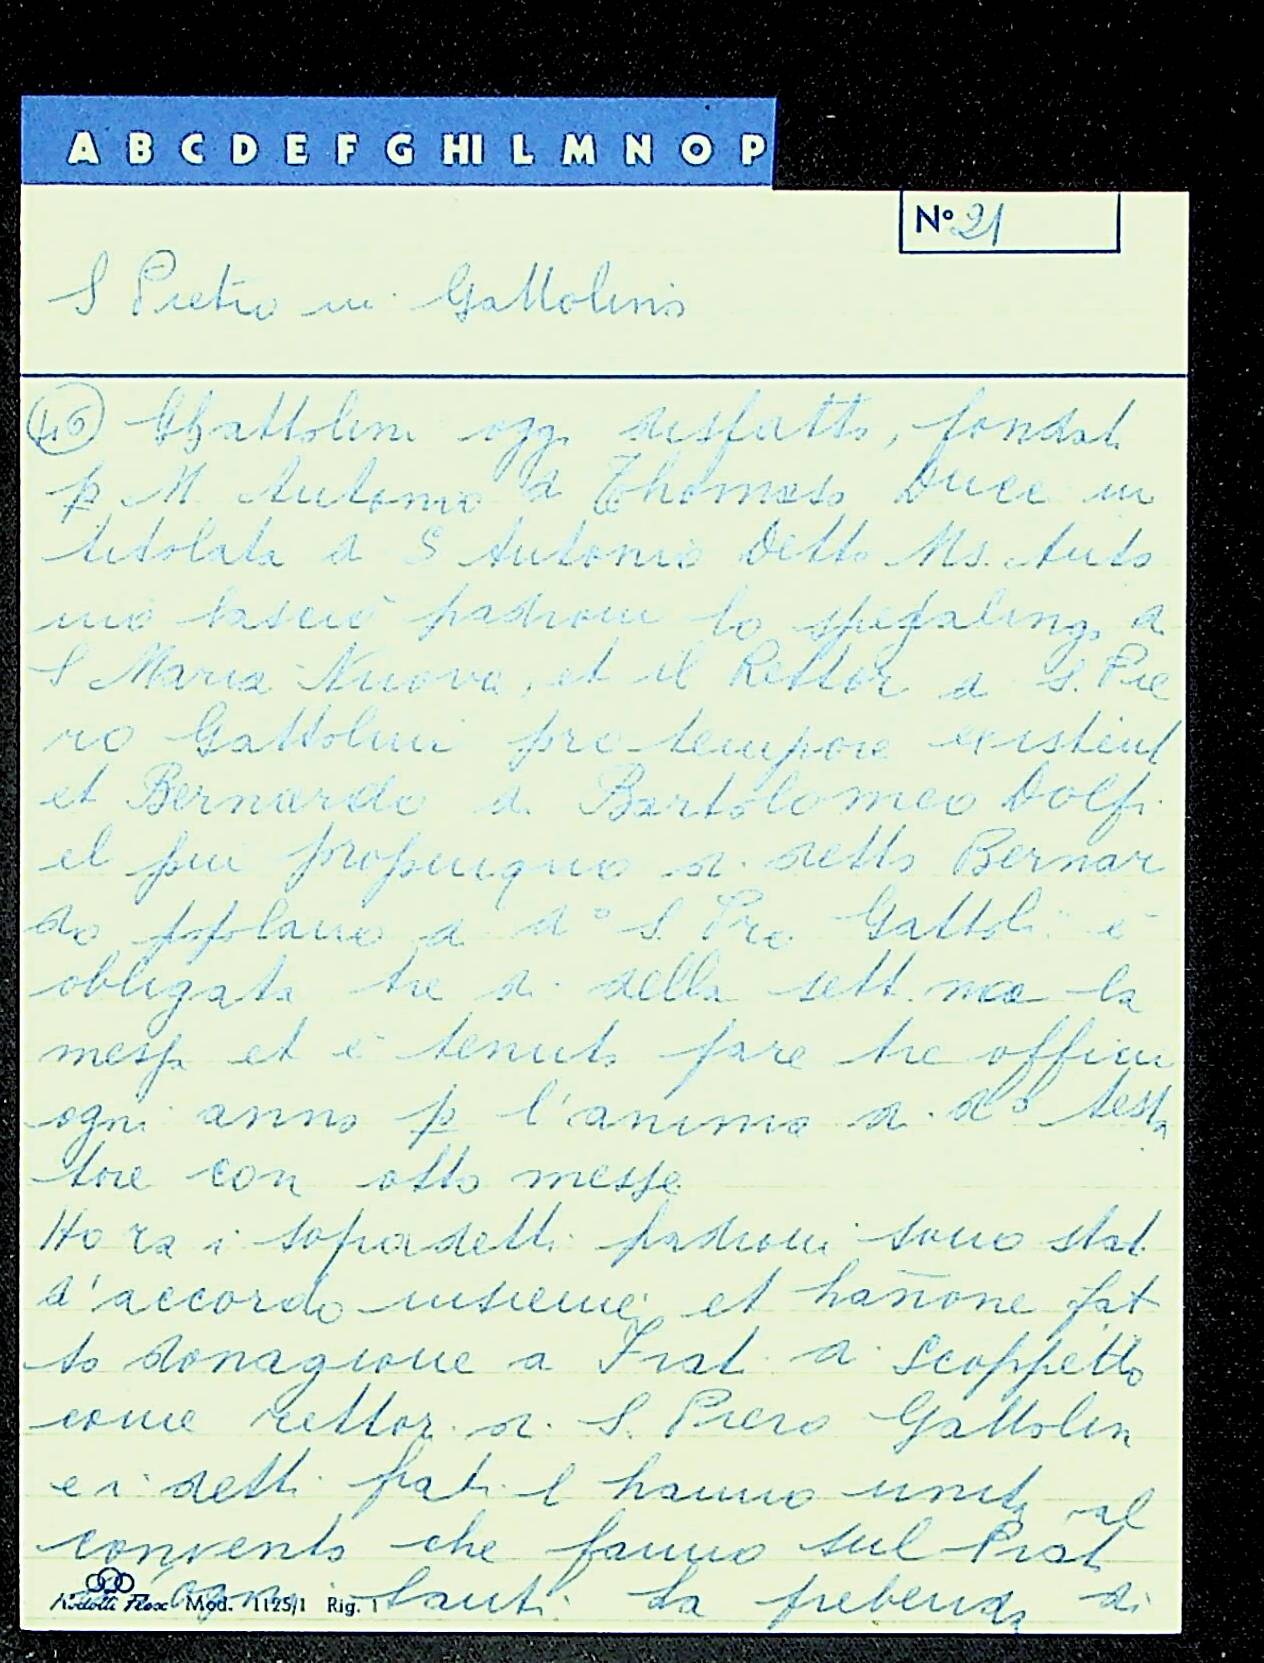 A B C D E F G HI L M N O P
Nº 21
S Pietro in Gattolino
46 Ghattolini oggi disfatto, fondat
p M Antonio d Thomaso Duce in
titolata a S Antonio Detto Ms. Anto
nio lasciò padroni lo spedaling d
S Maria Nuova, et il Rettor d S. Pie
ro Gattolini pro tempore existent
et Bernardo d. Bartolomeo Dolfi
el piu propinquo d. detto Bernar
do popolano d d° S. Pro Gattoli è
obligata tre dì della sett. ma la
messa et è tenuto fare tre officii
ogni anno p l'anima d. d° testa
tore con otto messe
Hora i sopradetti padroni sono stat
d'accordo insieme, et hañone fat
to donagione a Frat. d. Scoppetto
come rettor d. S. Piero Gattolin
e i detti frati l hanno unita al
convento che fanno sul Prat
Ogni santi. La prebenda di
Mod. 1125/1 Rig. 1